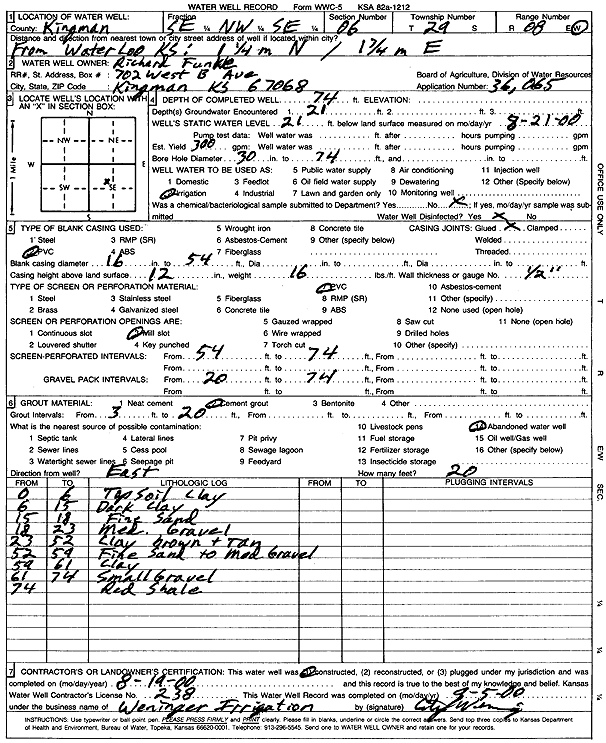 WATER WELL RECORD Form WWC-5 KSA 82a-1212
1 LOCATION OF WATER WELL: Fraction Section Number Township Number Range Number
County: Kingman SE ¼ NW ¼ SE ¼ 06 T 29 S R 08 E/W
Distance and direction from nearest town or city street address of well if located within city?
From Waterloo KS: 1 1/4 m N, 1 3/4 m E
2 WATER WELL OWNER: Richard Funke
RR#, St. Address, Box # : 702 West B Ave Board of Agriculture, Division of Water Resources
City, State, ZIP Code : Kingman KS 67068 Application Number: 36,065
3 LOCATE WELL'S LOCATION WITH AN "X" IN SECTION BOX:
N
NW NE
W E
SW SE
X
S
1 Mile
4 DEPTH OF COMPLETED WELL 74 ft. ELEVATION:
Depth(s) Groundwater Encountered 1. 21 ft. 2. ft. 3. ft.
WELL'S STATIC WATER LEVEL 21 ft. below land surface measured on mo/day/yr 8-21-00
Pump test data: Well water was ft. after hours pumping gpm
Est. Yield 300 gpm: Well water was ft. after hours pumping gpm
Bore Hole Diameter 30 in. to 74 ft., and in. to ft.
WELL WATER TO BE USED AS: 5 Public water supply 8 Air conditioning 11 Injection well
1 Domestic 3 Feedlot 6 Oil field water supply 9 Dewatering 12 Other (Specify below)
2 Irrigation 4 Industrial 7 Lawn and garden only 10 Monitoring well
Was a chemical/bacteriological sample submitted to Department? Yes No X; If yes, mo/day/yr sample was submitted
Water Well Disinfected? Yes X No
5 TYPE OF BLANK CASING USED: 5 Wrought iron 8 Concrete tile CASING JOINTS: Glued X Clamped
1 Steel 3 RMP (SR) 6 Asbestos-Cement 9 Other (specify below) Welded
2 PVC 4 ABS 7 Fiberglass Threaded
Blank casing diameter 16 in. to 54 ft., Dia in. to ft., Dia in. to ft.
Casing height above land surface 12 in., weight 16 lbs./ft. Wall thickness or gauge No. 1/2"
TYPE OF SCREEN OR PERFORATION MATERIAL: 7 PVC 10 Asbestos-cement
1 Steel 3 Stainless steel 5 Fiberglass 8 RMP (SR) 11 Other (specify)
2 Brass 4 Galvanized steel 6 Concrete tile 9 ABS 12 None used (open hole)
SCREEN OR PERFORATION OPENINGS ARE: 5 Gauzed wrapped 8 Saw cut 11 None (open hole)
1 Continuous slot 3 Mill slot 6 Wire wrapped 9 Drilled holes
2 Louvered shutter 4 Key punched 7 Torch cut 10 Other (specify)
SCREEN-PERFORATED INTERVALS: From 54 ft. to 74 ft., From ft. to ft.
From ft. to ft., From ft. to ft.
GRAVEL PACK INTERVALS: From 20 ft. to 74 ft., From ft. to ft.
From ft. to ft., From ft. to ft.
6 GROUT MATERIAL: 1 Neat cement 2 Cement grout 3 Bentonite 4 Other
Grout Intervals: From 3 ft. to 20 ft., From ft. to ft., From ft. to ft.
What is the nearest source of possible contamination: 10 Livestock pens 14 Abandoned water well
1 Septic tank 4 Lateral lines 7 Pit privy 11 Fuel storage 15 Oil well/Gas well
2 Sewer lines 5 Cess pool 8 Sewage lagoon 12 Fertilizer storage 16 Other (specify below)
3 Watertight sewer lines 6 Seepage pit 9 Feedyard 13 Insecticide storage
Direction from well? East How many feet? 20
FROM TO LITHOLOGIC LOG FROM TO PLUGGING INTERVALS
0 6 Top Soil Clay
6 15 Dark Clay
15 18 Fine Sand
18 23 Med. Gravel
23 52 Clay brown + Tan
52 59 Fine Sand to Med Gravel
59 61 Clay
61 74 Small Gravel
74 Red Shale
7 CONTRACTOR'S OR LANDOWNER'S CERTIFICATION: This water well was (1) constructed, (2) reconstructed, or (3) plugged under my jurisdiction and was
completed on (mo/day/year) 8-19-00 and this record is true to the best of my knowledge and belief. Kansas
Water Well Contractor's License No. 238 This Water Well Record was completed on (mo/day/yr) 9-5-00
under the business name of Weninger Irrigation by (signature)
INSTRUCTIONS: Use typewriter or ball point pen. PLEASE PRESS FIRMLY and PRINT clearly. Please fill in blanks, underline or circle the correct answers. Send top three copies to Kansas Department
of Health and Environment, Bureau of Water, Topeka, Kansas 66620-0001. Telephone: 913-296-5545. Send one to WATER WELL OWNER and retain one for your records.
OFFICE USE ONLY
T
R
E/W
SEC.
¼
¼
¼